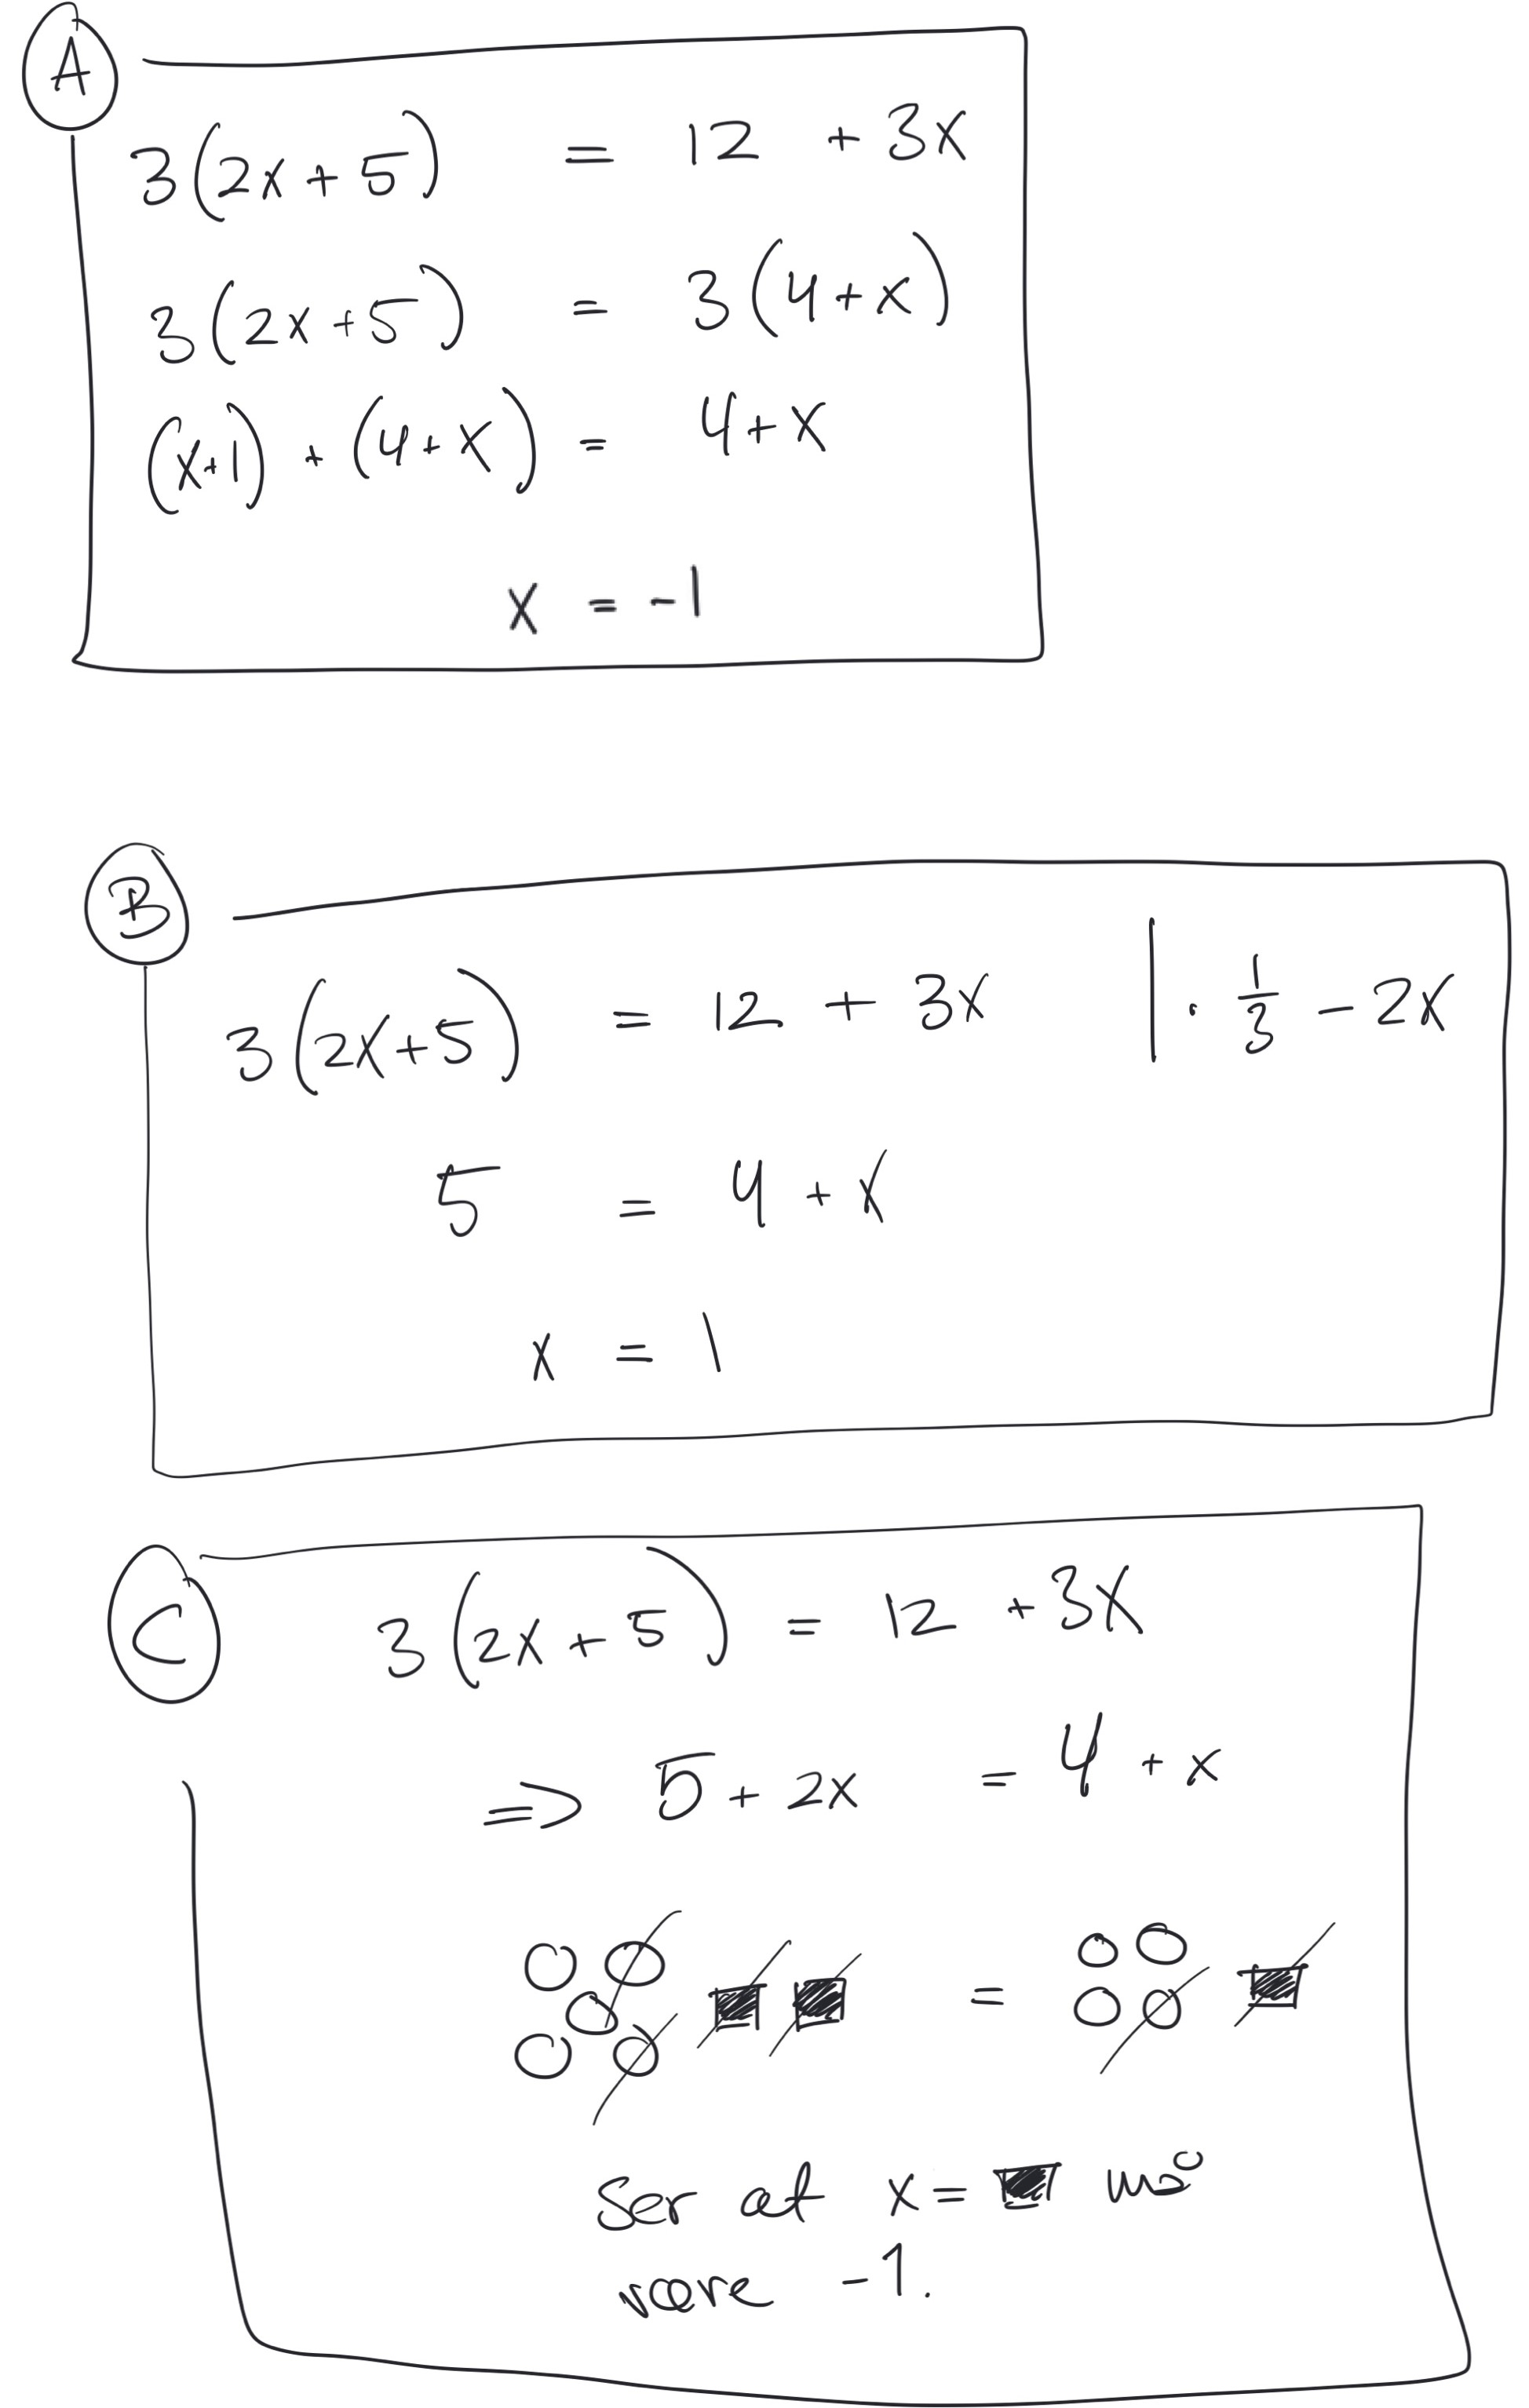 A
3(2x+5) = 12 + 3x
3(2x+5) = 3(4+x)
(x+1) + (4+x) = 4+x
x = -1
B
3(2x+5) = 12 + 3x | · 1/3 - 2x
5 = 4 + x
x = 1
C
3(2x+5) = 12 + 3x
=> 5 + 2x = 4 + x
=
Ser at x = må
være -1.